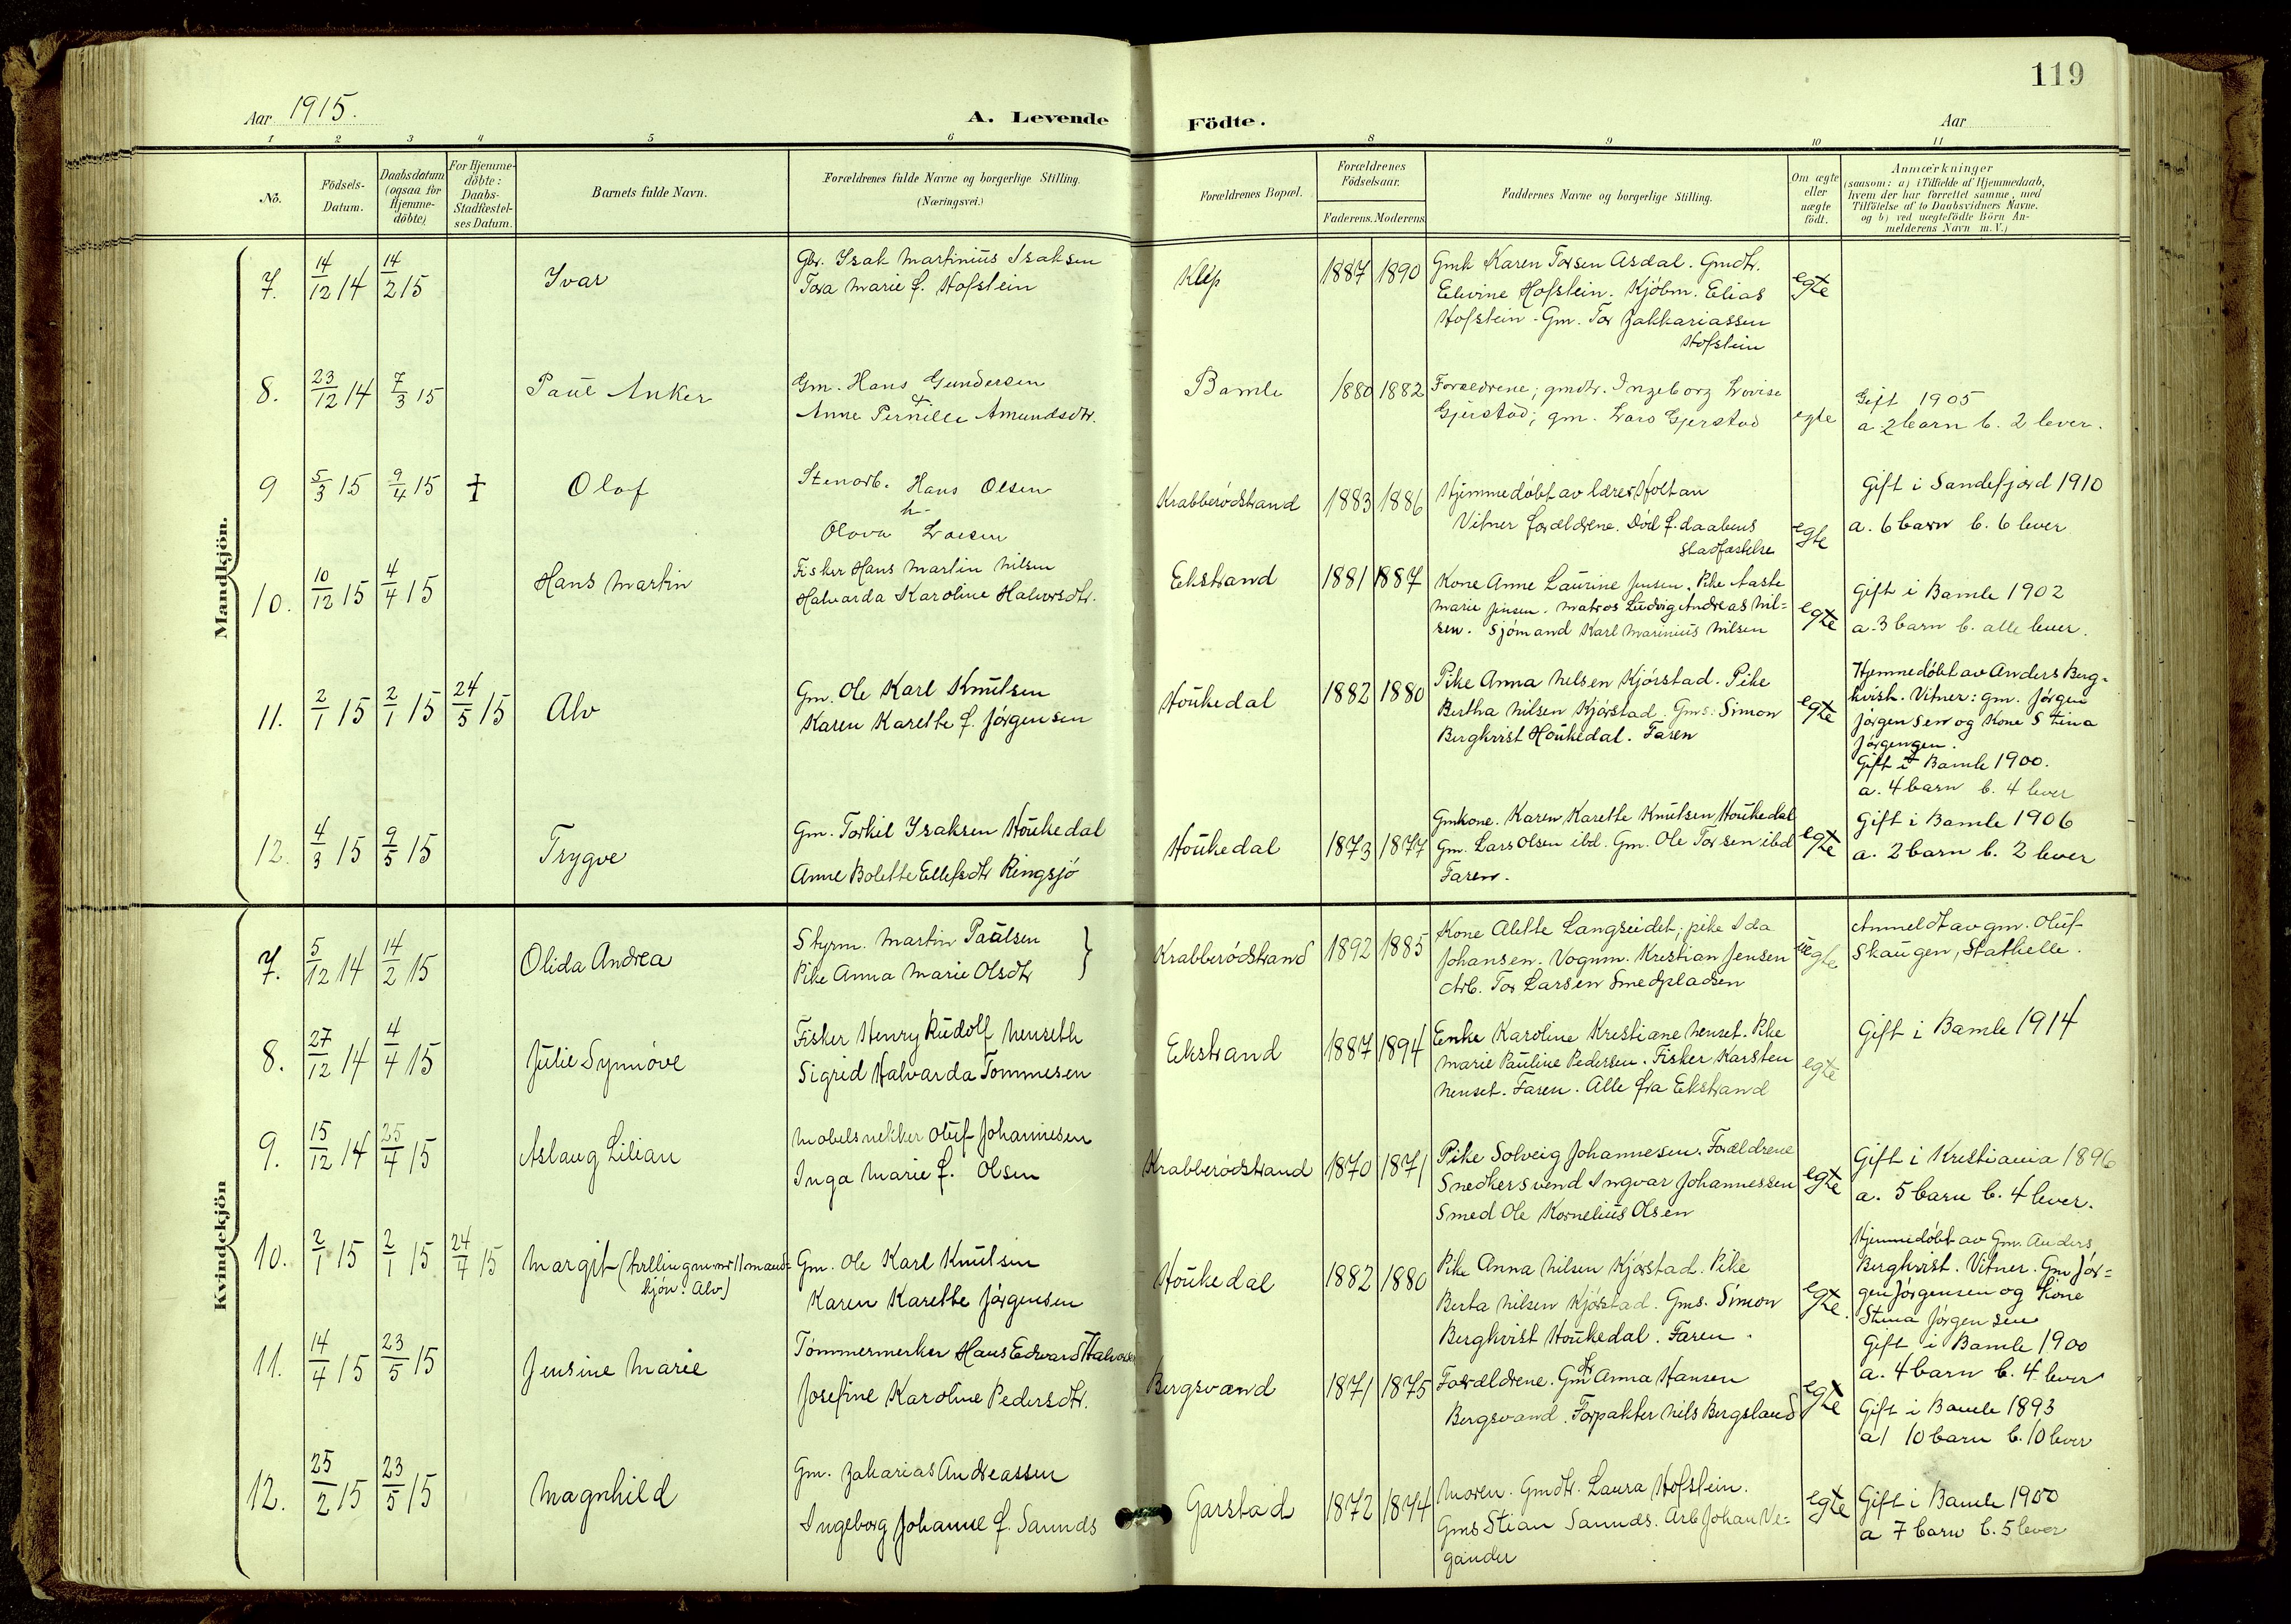 119
Aar 1915.
A. Levende Födte.
Aar
1 2 3 4 5 6 8 9 10 11
No.
Födsels-
Datum.
Daabsdatum
(ogsaa for
Hjemme-
döbte)
For Hjemme-
döbte:
Daabs-
Stadfæstel-
ses Datum.
Barnets fulde Navn.
Forældrenes fulde Navne og borgerlige Stilling.
(Næringsvei.)
Forældrenes Bopæl.
Forældrenes
Födselsaar.
Faderens. Moderens.
Faddernes Navne og borgerlige Stilling.
Om ægte
eller
uægte
födt.
Anmærkninger
(saasom: a) i Tilfælde af Hjemmedaab,
hvem der har forrettet samme, med
Tilföielse af to Daabsvidners Navne.
og b) ved uægtefödte Börn An-
melderens Navn m. V.)
Mandkjön.
7. 14/12 14 14/2 15 Ivar
Gbr. Isak Martinius Isaksen
Tora Marie f. Hofstein
Klep 1887 1890
Gmk Karen Torsen Asdal. Gmdtr.
Elevine Hofstein. Kjöbm. Elias
Hofstein - Gm. Tor Zakkariassen
Hofstein
egte
8. 23/12 14 7/3 15 Paul Anker
Gm. Hans Gundersen
&
Anne Pernille Amundsdtr.
Bamle 1880 1882
Forældrene; gmdtr. Ingeborg Lovise
Gjerstad; gm. Lars Gjerstad
egte
Gift 1905
a. 2 barn b. 2 lever.
9 5/3 15 9/4 15 † Olof
Stenarb. Hans Olsen
h-
Olava Larsen
Krabberødstrand 1883 1886
Hjemmedöbt av lærer Holtan
Vitner forældrene. Död f. daabens
stadfæstelse
egte
Gift i Sandefjord 1910
a. 6 barn b. 6 lever
10. 10/12 15 4/4 15 Hans Martin
Fisker Hans Martin Nilsen
Halvarda Karoline Halvorsdtr.
Ekstrand 1881 1887
Kone Anne Laurine Jensen. Pike Aaste
Marie Jensen. Matros Ludvig Andreas Nil=
sen. Sjömand Karl Marinius Nilsen
egte
Gift i Bamle 1902
a. 3 barn b. alle lever.
11. 2/1 15 2/1 15 24/5 15 Alv
Gm. Ole Karl Knutsen
Karen Karette f. Jörgensen
Houkedal 1882 1880
Pike Anna Nelsen Kjörstad. Pike
Bertha Nilsen Kjörstad. Gms. Simon
Bergkvist Houkedal. Faren
egte
Hjemmedöbt av Anders Berg-
kvist. Vitner: gm. Jörgen
Jörgensen og Kone Stina
Jörgengen.
Gift i Bamle 1900.
a. 4 barn b. 4 lever
12. 4/3 15 9/5 15 Trygve
Gm. Torkil Isaksen Houkedal
Anne Bolette Ellefsdtr Ringsjö
Houkedal 1873 1877
Gmkone. Karen Karette Knutsen Houkedal
Gm. Lars Olsen ibd. Gm. Ole Torsen ibd
Faren.
egte
Gift i Bamle 1906
a. 2 barn b. 2 lever
Kvindekjön
7. 5/12 14 14/2 15 Olida Andrea
Styrm. Martin Paulsen
Pike Anna Marie Olsdtr
Krabberødstrand 1892 1885
Kone Alette Langseidet; pike Ida
Johansen. Vognm. Kristian Jensen
Arb. Tor Larsen Smedpladsen
uegte
Anmeldt av gm. Oluf
Skaugen, Stathelle.
8. 27/12 14 4/4 15 Julie Synnöve
Fisker Henry Rudolf Henseth
Sigrid Halvarda Tommesen
Ekstrand 1887 1894
Enke Karoline Kristiane Henset. Pike
Marie Pauline Pedersen. Fisker Karsten
Henset. Faren. Alle fra Ekstrand
egte
Gift i Bamle 1914
9. 15/12 14 25/4 15 Aslaug Lilian
Mobelsnekker Oluf Johannesen
Inga Marie f. Olsen
Krabberødstrand 1870 1871
Pike Solveig Johannesen. Forældrene
Snedkersvend Ingvar Johannessen
Smed Ole Kornelius Olsen
egte
Gift i Kristiania 1896
a. 5 barn b. 4 lever.
10. 2/1 15 2/1 15 24/4 15 Margit (tvilling m nr 11 mand=
kjön: Alv)
Gm. Ole Karl Knutsen
Karen Karette Jörgensen
Houkedal 1882 1880
Pike Anna Nilsen Kjörstad. Pike
Berta Nilsen Kjörstad. Gms. Simon
Bergkvist Houkedal. Faren.
egte.
Hjemmedöbt av Gm. Anders
Bergkvist. Vitner. Gm Jör=
gen Jörgensen og Kone
Stina Jörgensen
Gift i Bamle 1900
a. 4 barn b. 4 lever
11. 14/4 15 23/5 15 Jensine Marie
Tömmermerker Hans Edvard Halvorsen
Josefine Karoline Pedersdtr.
Bergsvand 1871 1875
Forældrene. Gmdtr Anna Hansen
Bergsvand. Forpakter Nils Bergsland
egte
Gift i Bamle 1893
a) 10 barn b. 10 lever
12. 25/2 15 23/5 15 Magnhild
Gm. Zakarias Andreassen
Ingeborg Johanne f. Sannds
Garstad 1872 1874
Moren. Gmdtr. Laura Hofstein.
Gms Stian Sannds. Arb Johan Ve=
gander
egte
Gift i Bamle 1900
a 7 barn b. 5 lever